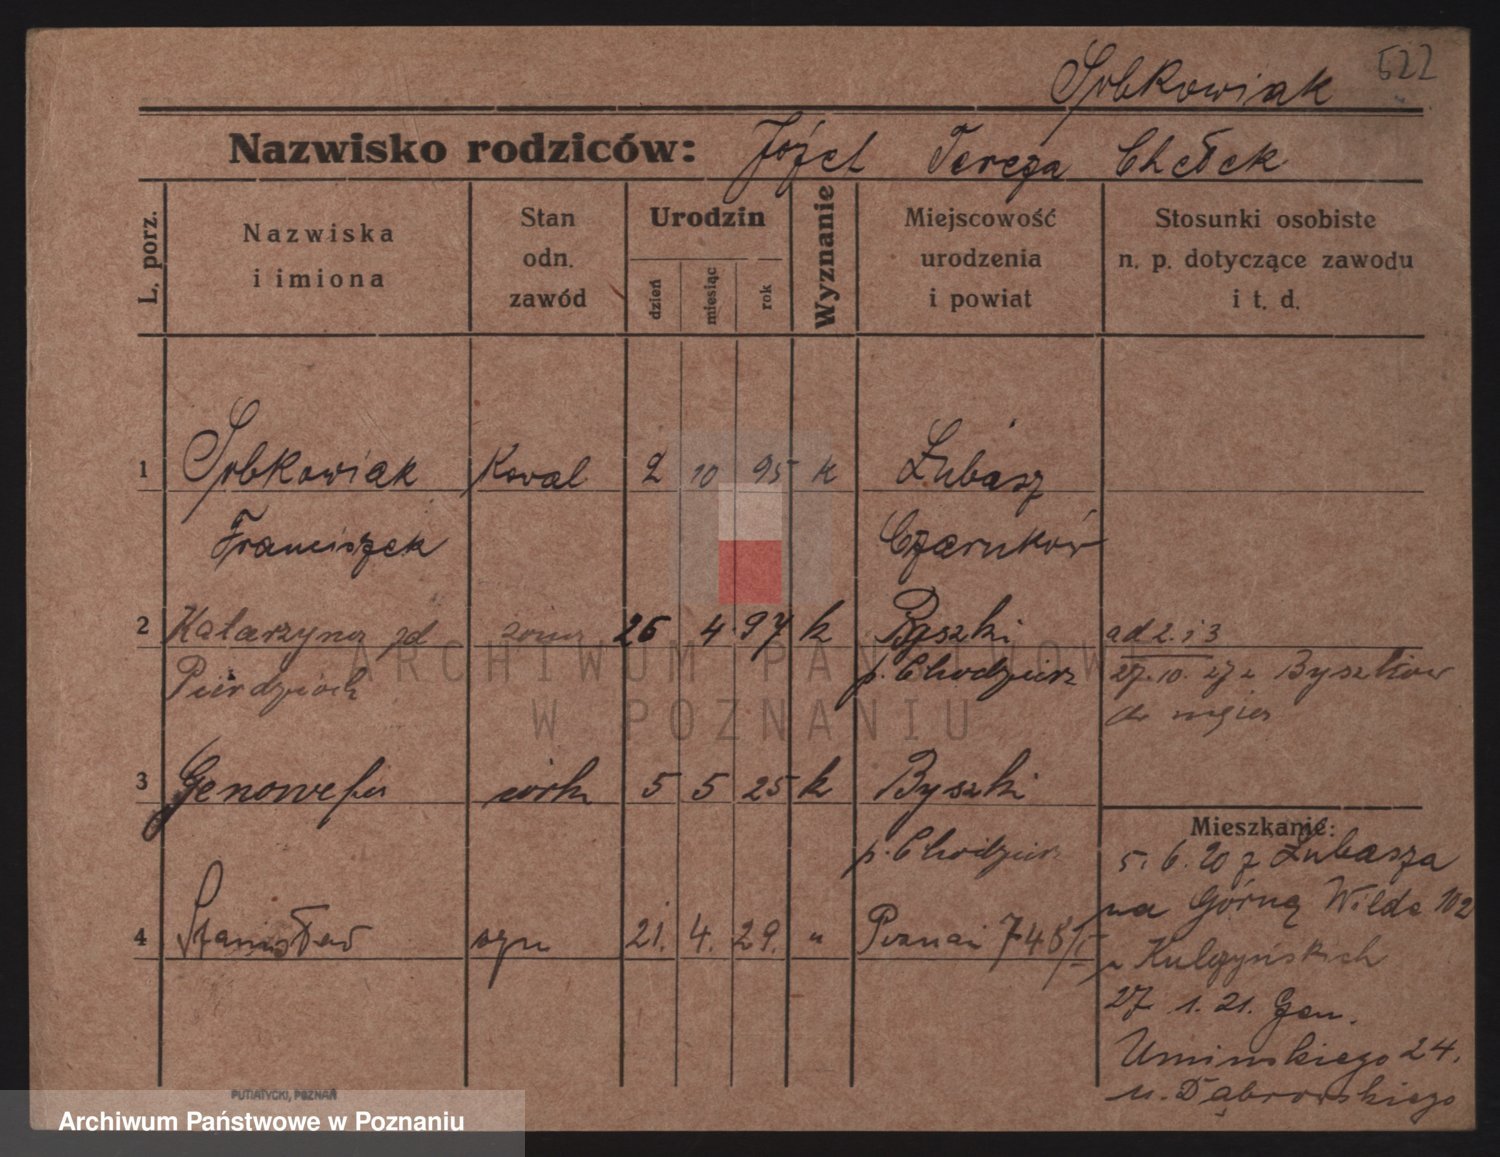 522
Sobkowiak
Nazwisko rodziców: Józef Teresa Chełek
L. porz.
Nazwiska
i imiona
Stan
odn.
zawód
Urodzin
dzień
miesiąc
rok
Wyznanie
Miejscowość
urodzenia
i powiat
Stosunki osobiste
n. p. dotyczące zawodu
i t. d.
1 Sobkowiak Kowal 2 10 95 k Lubasz
Franciszek Czarnków
2 Katarzyna żona 26 4 97 k Byszki ad 2. i 3
p. Chodzież 27. 10. 27 z Byszków
do męża
3 Genowefa córka 5 5 25 k Byszki
p. Chodzież
Mieszkanie:
5. 6. 20 z Lubasza
na Górną Wildę 102
4 Stanisław syn 21. 4. 29. " Poznań 748/
u Kulczyńskich
27 1. 21. Gen.
Umińskiego 24.
u. Dąbrowskiego
PUTIATYCKI, POZNAŃ
ARCHIWUM PAŃSTWOWE
W POZNANIU
Archiwum Państwowe w Poznaniu